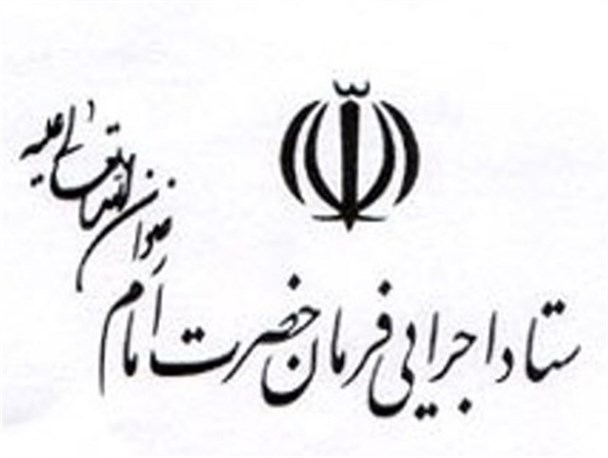 ستاد اجرایی فرمان حضرت امام
رضوان الله تعالی علیه